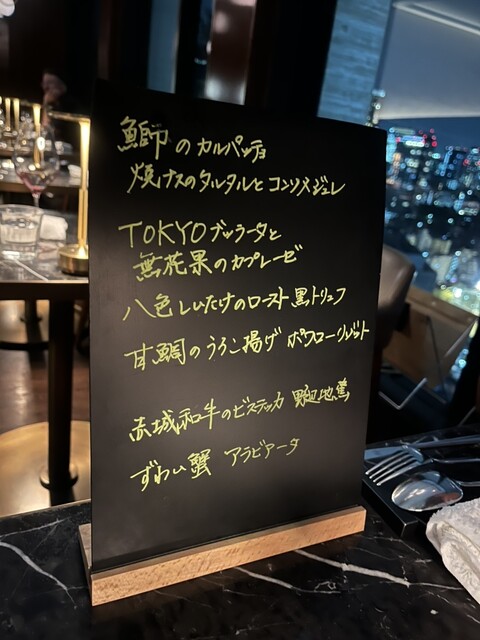 鰤のカルパッチョ
焼ナスのタルタルとコンソメジュレ
TOKYOブッラータと
無花果のカプレーゼ
八色しいたけのロースト 黒トリュフ
甘鯛のうろこ揚げ ポワローリゾット
赤城和牛のビステッカ
ずわい蟹 アラビアータ